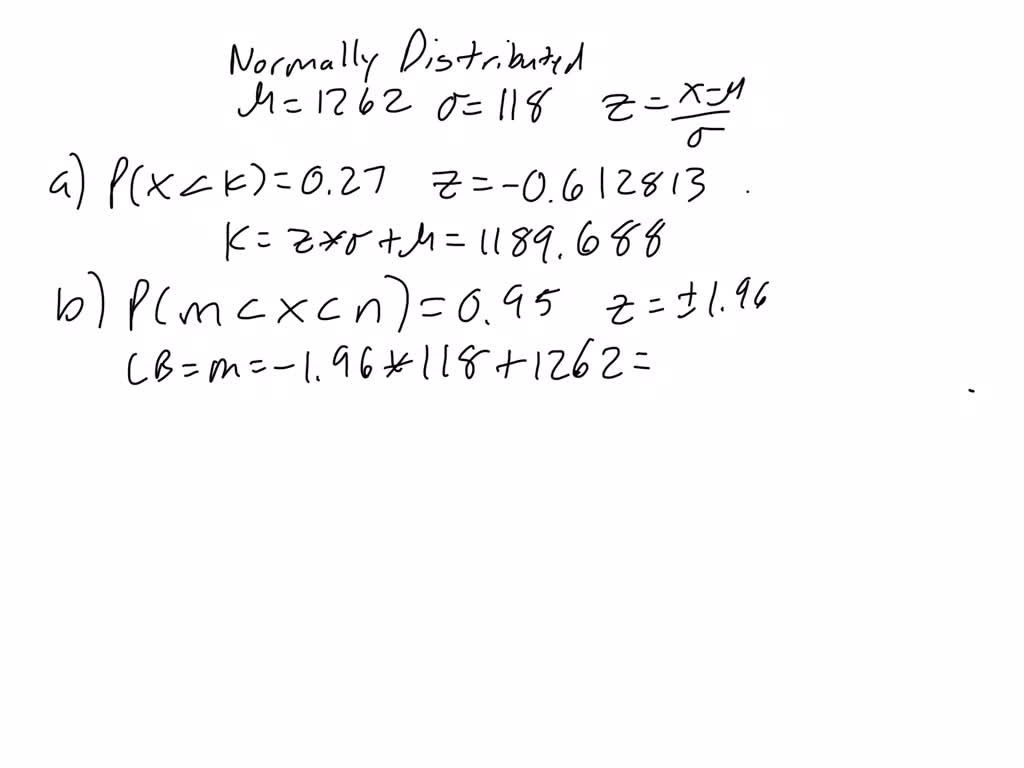 Normally Distributed
μ=1262 σ=118 z=x-μ/σ
a) P(x<k)=0.27 z=-0.612813
k=z*σ+μ=1189.688
b) P(m<x<n)=0.95 z=±1.96
CB=m=-1.96*118+1262=